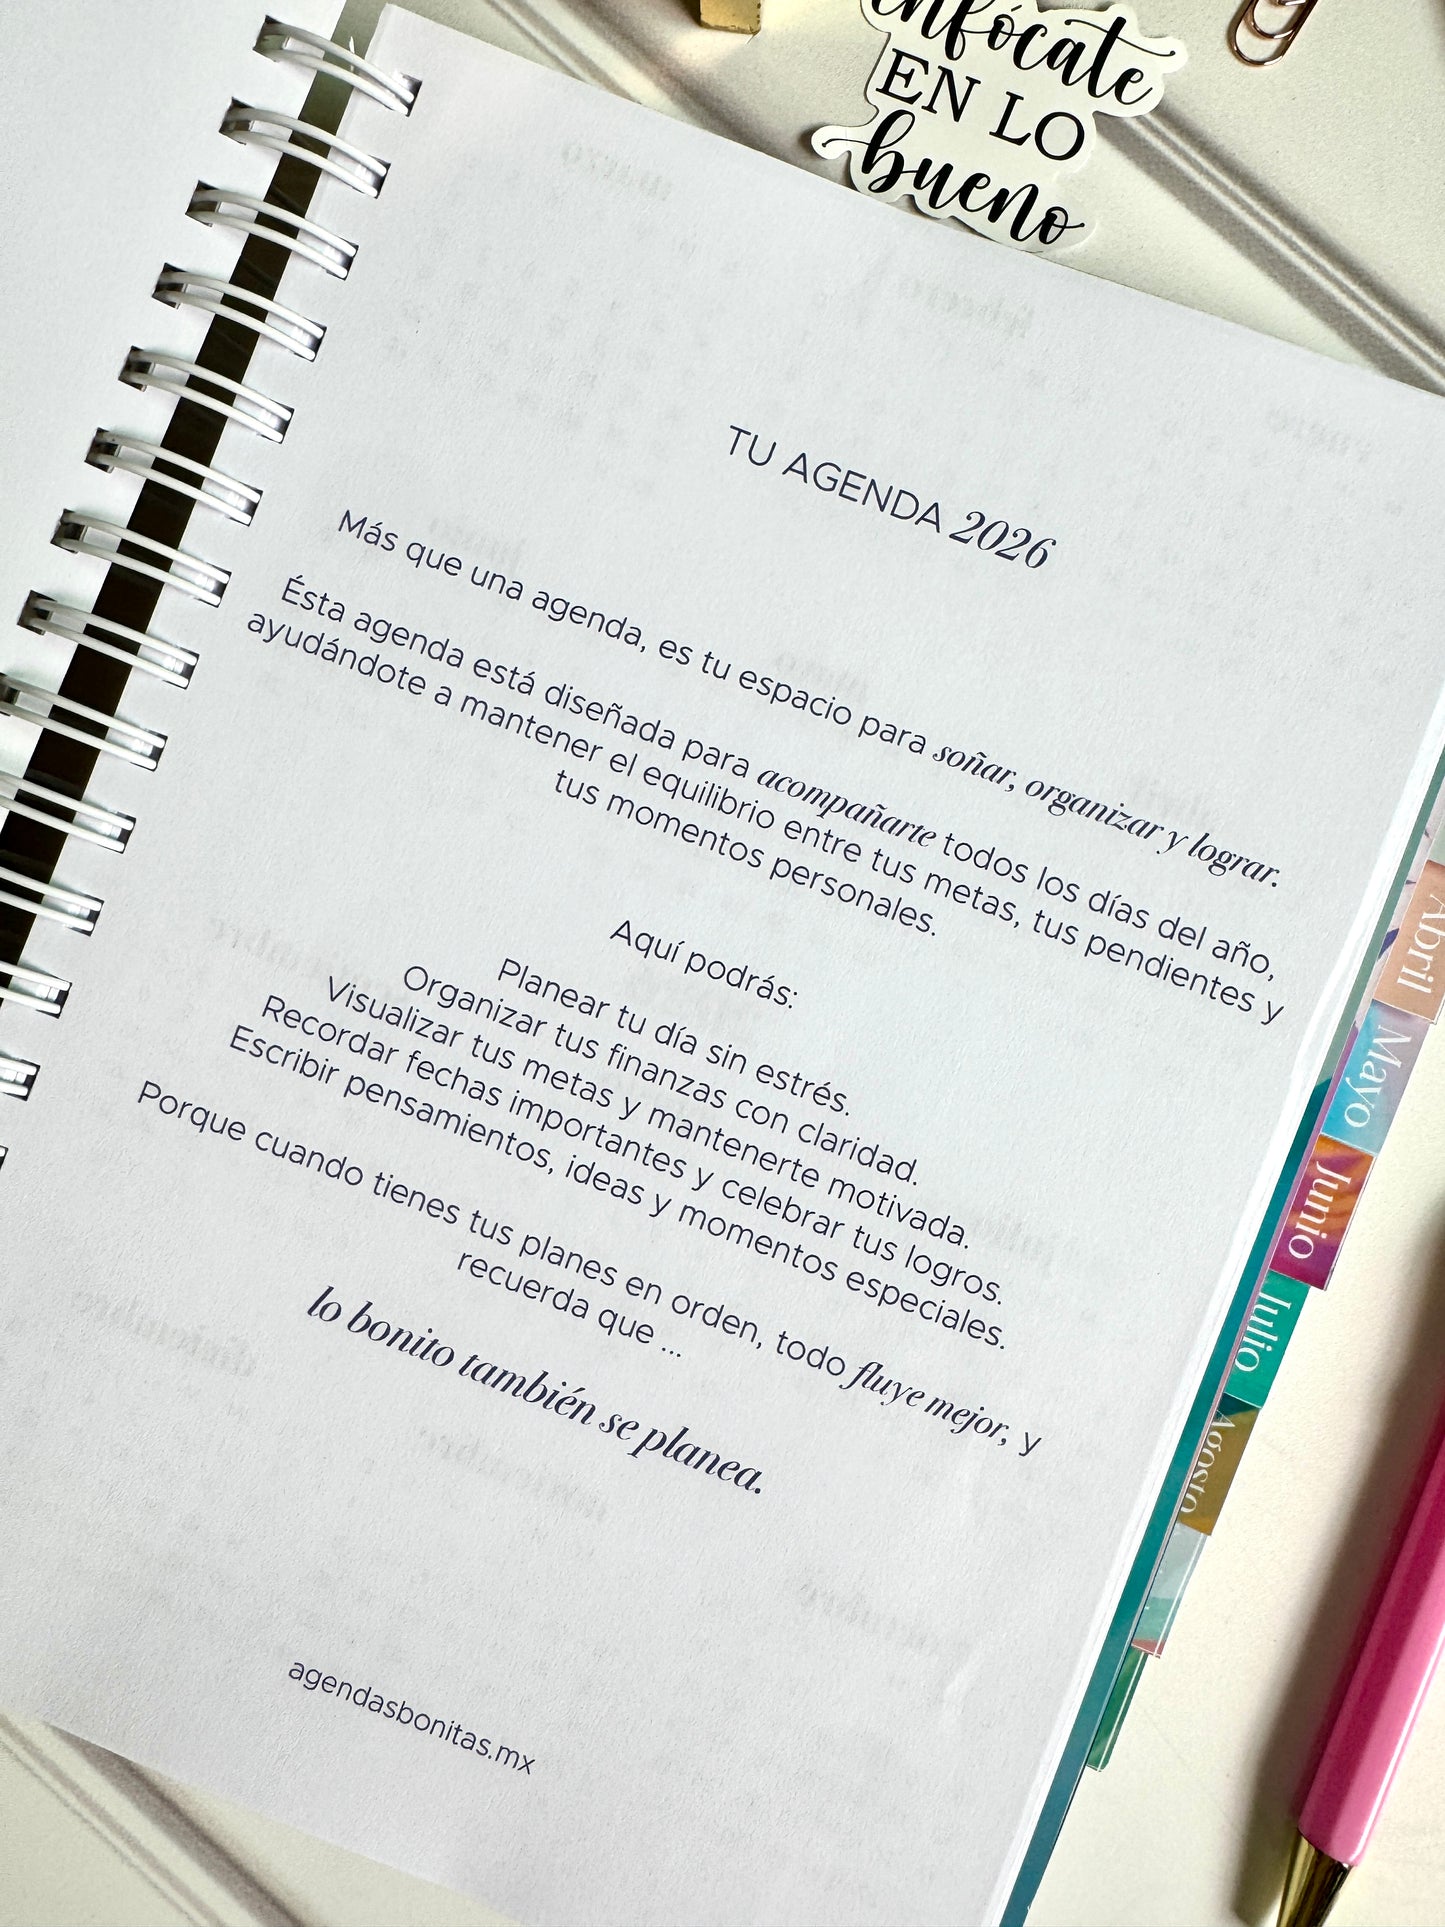 enfócate
EN LO
bueno
TU AGENDA 2026
Más que una agenda, es tu espacio para soñar, organizar y lograr.
Ésta agenda está diseñada para acompañarte todos los días del año,
ayudándote a mantener el equilibrio entre tus metas, tus pendientes y
tus momentos personales.
Aquí podrás:
Planear tu día sin estrés.
Organizar tus finanzas con claridad.
Visualizar tus metas y mantenerte motivada.
Recordar fechas importantes y celebrar tus logros.
Escribir pensamientos, ideas y momentos especiales.
Porque cuando tienes tus planes en orden, todo fluye mejor, y
recuerda que ...
lo bonito también se planea.
agendasbonitas.mx
Abril
Mayo
Junio
Julio
Agosto